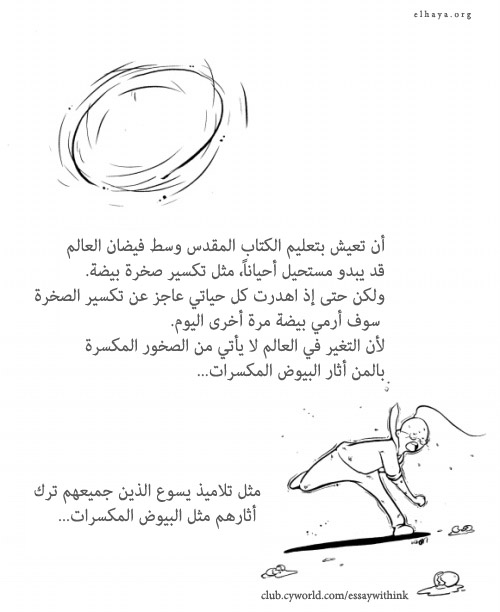 elhaya.org
أن تعيش بتعليم الكتاب المقدس وسط فيضان العالم
قد يبدو مستحيل أحياناً، مثل تكسير صخرة بيضة.
ولكن حتى إذ اهدرت كل حياتي عاجز عن تكسير الصخرة
سوف أرمي بيضة مرة أخرى اليوم.
لأن التغير في العالم لا يأتي من الصخور المكسرة
بالمن أثار البيوض المكسرات...
مثل تلاميذ يسوع الذين جميعهم ترك
أثارهم مثل البيوض المكسرات...
club.cyworld.com/essaywithink